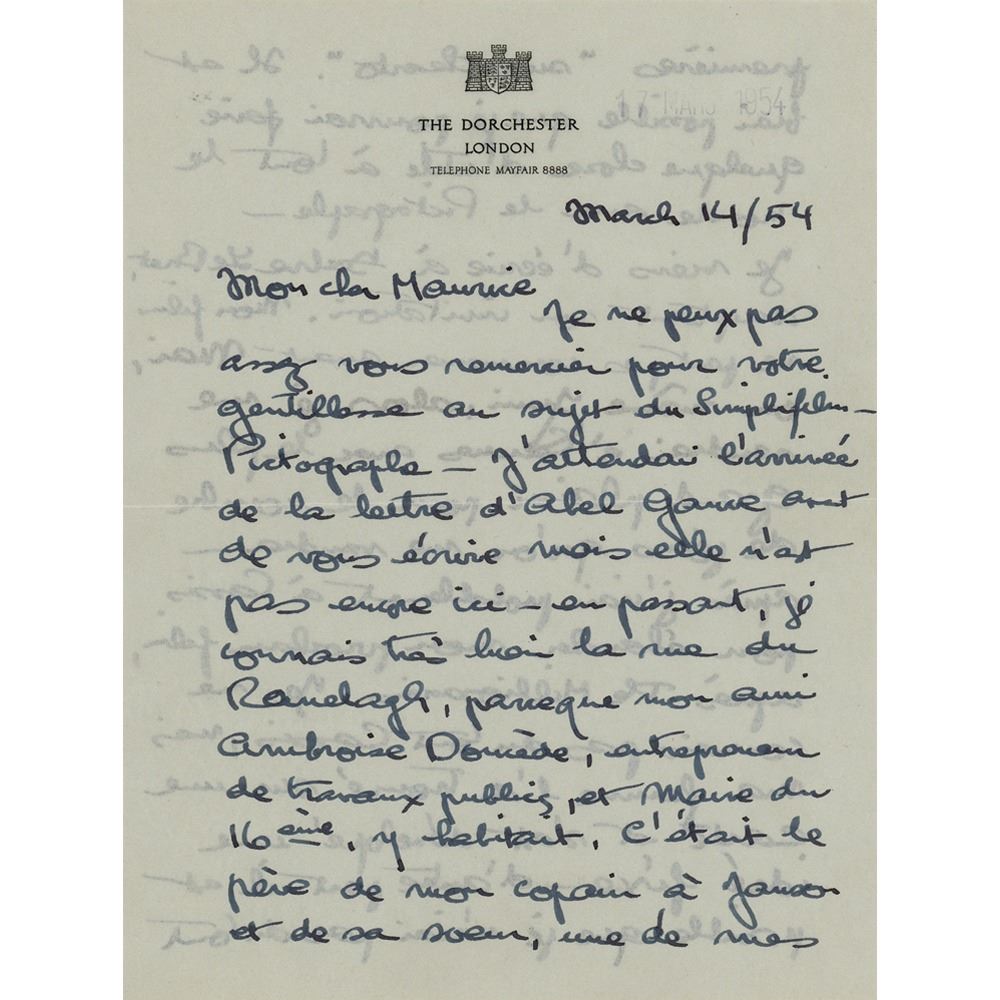 THE DORCHESTER
LONDON
TELEPHONE MAYFAIR 8888
17 MARS 1954
March 14/54
Mon cher Maurice
Je ne peux pas
assez vous remercier pour votre
gentillesse au sujet du Simplifilm-
Pictographe — J'attendai l'arrivée
de la lettre d'Abel Gance avant
de vous écrire mais elle n'est
pas encore ici — en passant, je
connais très bien la rue du
Ranelagh, parceque mon ami
Ambroise Domède, entrepreneur
de travaux publics, et Maire du
16ème, y habitait. C'était le
père de mon copain à Janson
et de sa soeur, une de mes